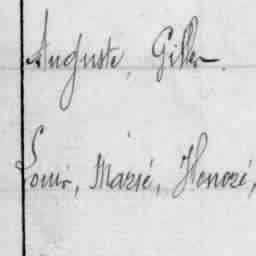 Auguste, Gilles.
Louis, Marié, Honoré,